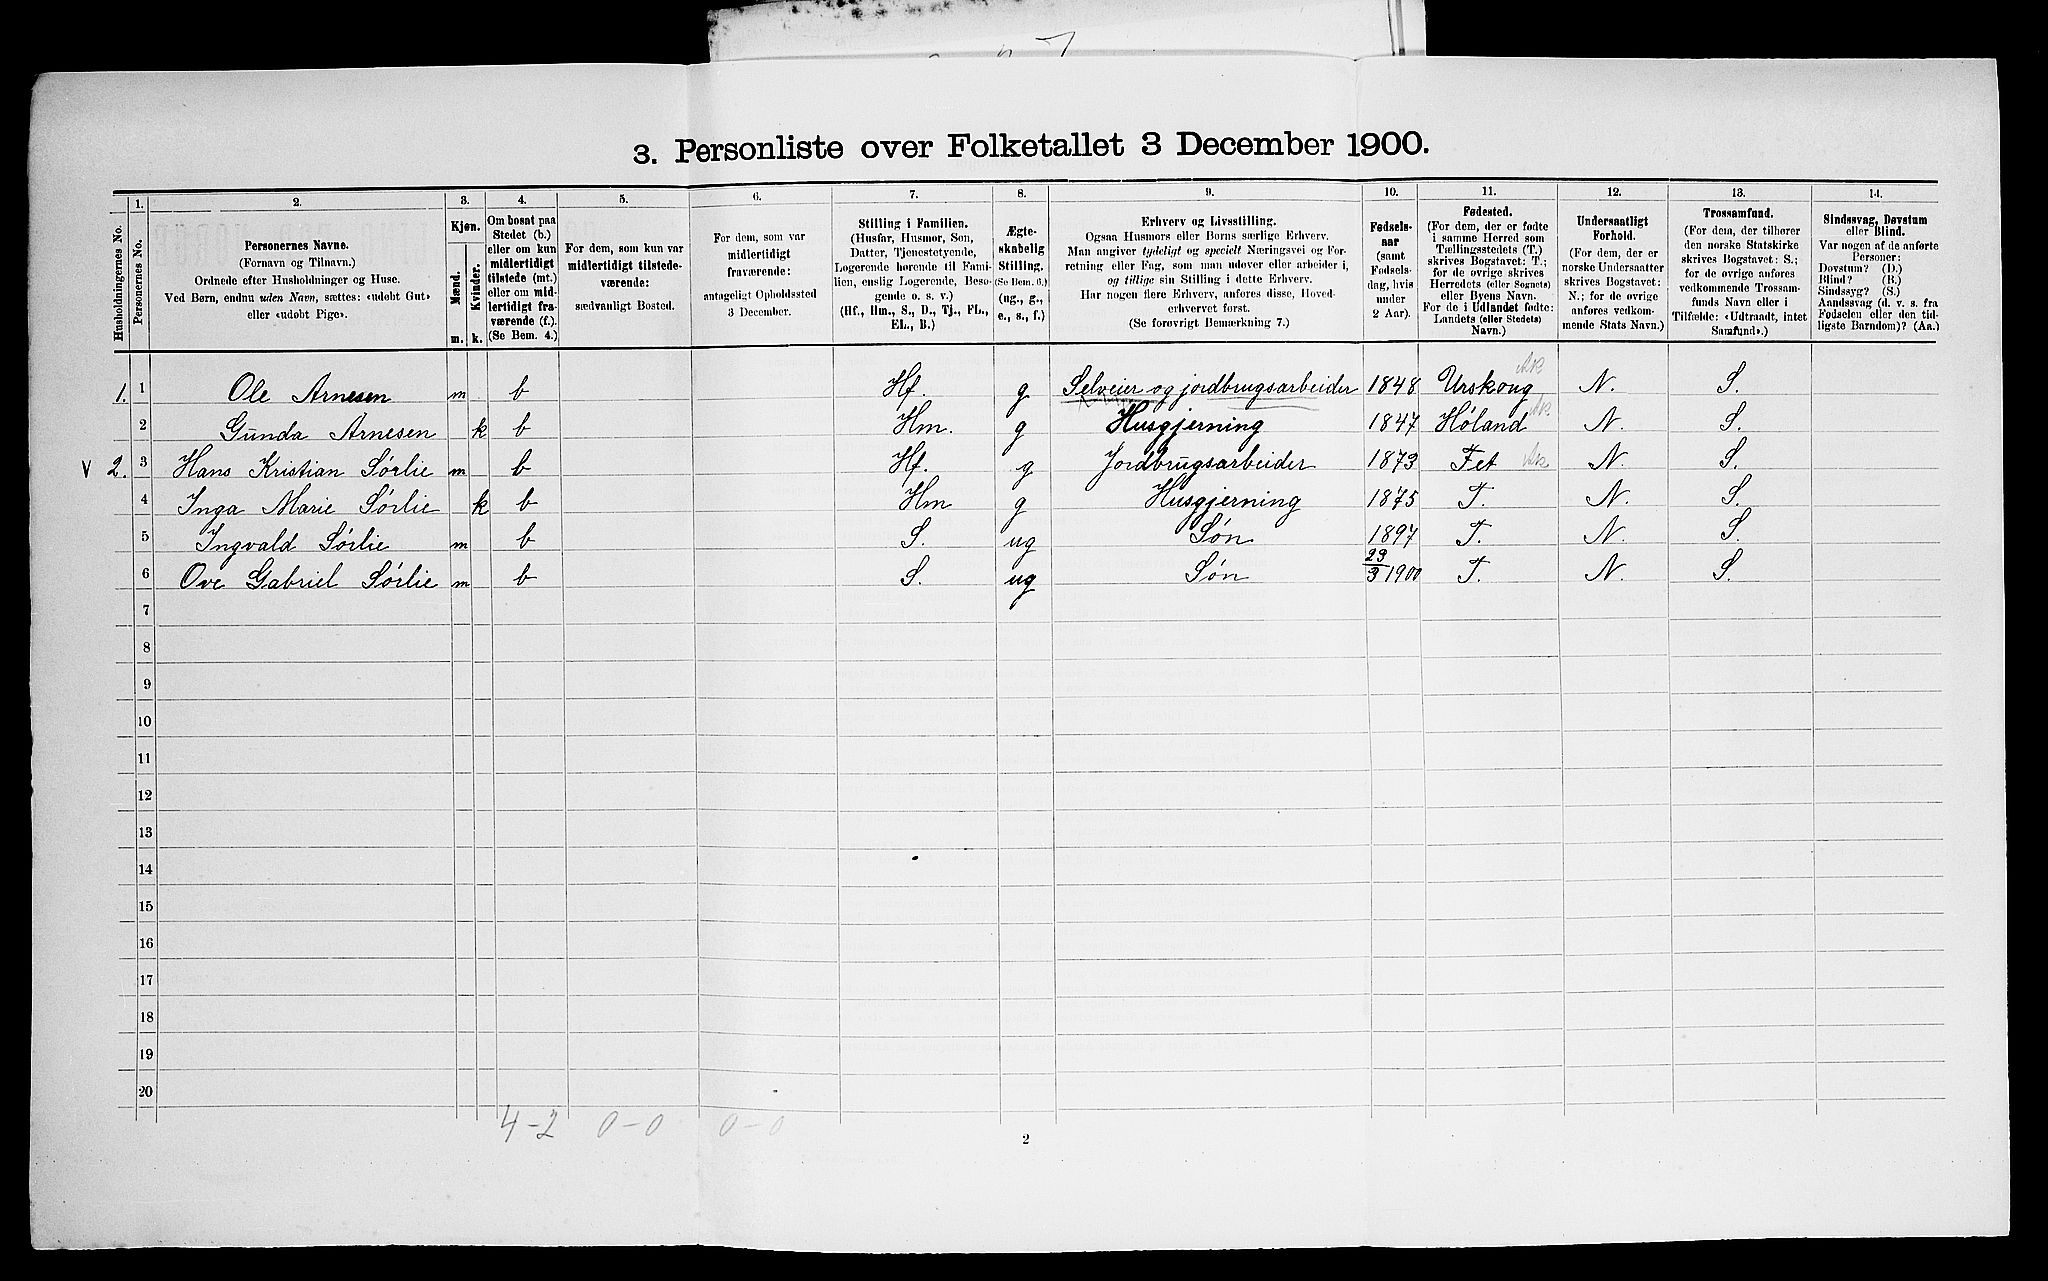 3. Personliste over Folketallet 3 December 1900.
Husholdningernes No.
1.
Personernes No.
2.
Personernes Navne.
(Fornavn og Tilnavn.)
Ordnede efter Husholdninger og Huse.
Ved Børn, endnu uden Navn, sættes: «udøbt Gut»
eller «udøbt Pige».
3.
Kjøn.
Mænd.
Kvinder.
m. k.
4.
Om bosat paa
Stedet (b.)
eller om kun
midlertidigt
tilstede (mt.)
eller om mid-
lertidigt fra-
værende (f.)
(Se Bem. 4.)
5.
For dem, som kun var
midlertidigt tilstede-
værende:
sædvanligt Bosted.
6.
For dem, som var
midlertidigt
fraværende:
antageligt Opholdssted
3 December.
7.
Stilling i Familien.
(Husfar, Husmor, Søn,
Datter, Tjenestetyende,
Logerende hørende til Fami-
lien, enslig Logerende, Besø-
gende o. s. v.)
(Hf., Hm., S., D., Tj., FL.,
EL., B.)
8.
Ægte-
skabelig
Stilling.
(Se Bem. 6.)
(ug., g.,
e., s., f.)
9.
Erhverv og Livsstilling.
Ogsaa Husmors eller Børns særlige Erhverv.
Man angiver tydeligt og specielt Næringsvei og For-
retning eller Fag, som man udøver eller arbeider i,
og tillige sin Stilling i dette Erhverv.
Har nogen flere Erhverv, anføres disse, Hoved-
erhvervet først.
(Se forøvrigt Bemærkning 7.)
10.
Fødsels-
aar
(samt
Fødsels-
dag, hvis
under
2 Aar).
11.
Fødested.
(For dem, der er fødte
i samme Herred som
Tællingsstedets (T.)
skrives Bogstavet: T.;
for de øvrige skrives
Herredets (eller Sognets)
eller Byens Navn.
For de i Udlandet fødte:
Landets (eller Stedets)
Navn.)
12.
Undersaatligt
Forhold.
(For dem, der er
norske Undersaatter
skrives Bogstavet:
N.; for de øvrige
anføres vedkom-
mende Stats Navn.)
13.
Trossamfund.
(For dem, der tilhører
den norske Statskirke
skrives Bogstavet: S.;
for de øvrige anføres
vedkommende Trossam-
funds Navn eller i
Tilfælde: «Udtraadt, intet
Samfund».)
14.
Sindssvag, Døvstum
eller Blind.
Var nogen af de anførte
Personer:
Døvstum? (D.)
Blind? (B.)
Sindssyg? (S.)
Aandssvag (d. v. s. fra
Fødselen eller den tid-
ligste Barndom)? (Aa.)
1. 1 Ole Arnesen m b Hf. g Selveier og jordbrugsarbeider 1848 Urskoug Ak N. S.
2 Gunda Arnesen k b Hm. g Husgjerning 1847 Høland Ak N. S.
v 2. 3 Hans Kristian Sørlie m b Hf. g Jordbrugsarbeider 1873 Fet Ak N. S.
4 Inga Marie Sørlie k b Hm g Husgjerning 1875 T. N. S.
5 Ingvald Sørlie m b S. ug Søn 1897 T. N. S.
6 Ove Gabriel Sørlie m b S. ug Søn 23/3 1900 T. N. S.
7
8
9
10
11
12
13
14
15
16
17
18
19
20
4-2 0-0 0-0
2